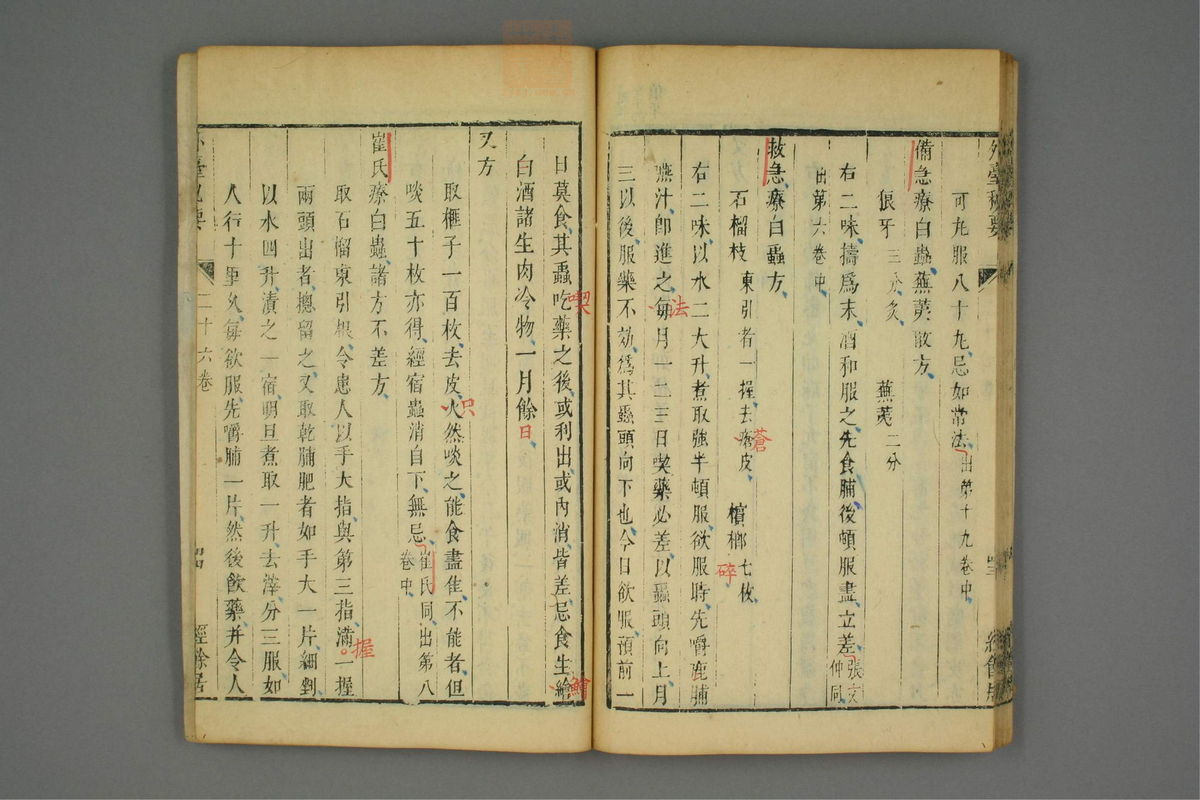 外臺秘要
可丸服八十丸忌如常法出第十九卷中
備急療白蟲蕪荑散方
狼牙三分炙 蕪荑二分
右二味擣爲末酒和服之先食脯後頓服盡立差張文仲同
出第六卷中
救急療白蟲方
石榴枝東引者一握去瘡皮 檳榔七枚
蒼
碎
右二味以水二大升煮取強半頓服欲服時先嚼鹿脯
嚥汁即進之每月一二三日喫藥必差以蟲頭向上月
法
三以後服藥不効爲其蟲頭向下也今日欲服預前一
日莫食其蟲吃藥之後或利出或內消皆差忌食生繪
喫
鱠
白酒諸生肉冷物一月餘日
又方
取榧子一百枚去皮火然啖之能食盡佳不能者但
只
啖五十枚亦得經宿蟲消自下無忌崔氏同出第八卷中
崔氏療白蟲諸方不差方
取石榴東引根令患人以手大指與第三指滿一握
握
兩頭出者摠留之又取乾脯肥者如手大一片細剉
以水四升漬之一宿明旦煮取一升去滓分三服如
人行十里久每欲服先嚼脯一片然後飲藥并令人
二十六卷
經餘居